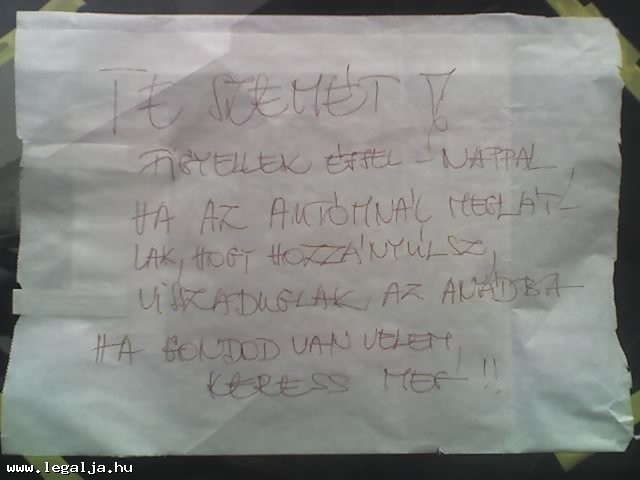 TE SZEMÉT!
FIGYELLEK ÉJJEL-NAPPAL
HA AZ AUTÓMNÁL MEGLÁT-
LAK, HOGY HOZZÁNYÚLSZ,
VISSZADUGLAK AZ ANYÁDBA
HA GONDOD VAN VELEM,
KERESS MEG!!
www.legalja.hu